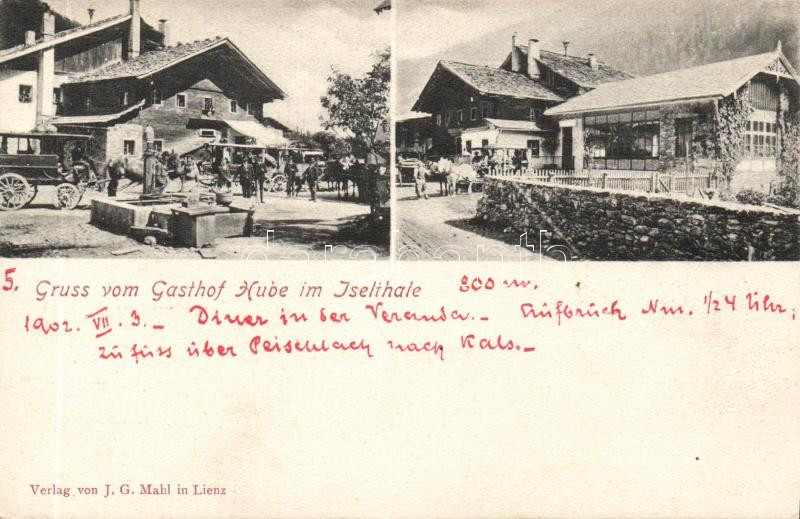 darabanth
5. Gruss vom Gasthof Hube im Iselthale 800 m.
1902. VII. 3. – Diner in der Veranda. – Aufbruch Nm. 1/24 Uhr;
zu fuss über Peischlach nach Kals. –
Verlag von J. G. Mahl in Lienz